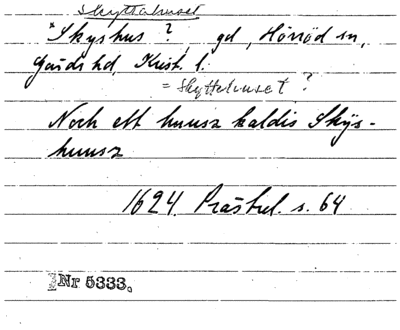 Skyttahuset
*Skyshus ?, gd, Hörröd sn,
Gärds hd, Krist. l.
= Skyttehuset ?
Noch ett huusz kaldis Skÿs-
huusz
1624. Prästrel. s. 64
Nr 5333.